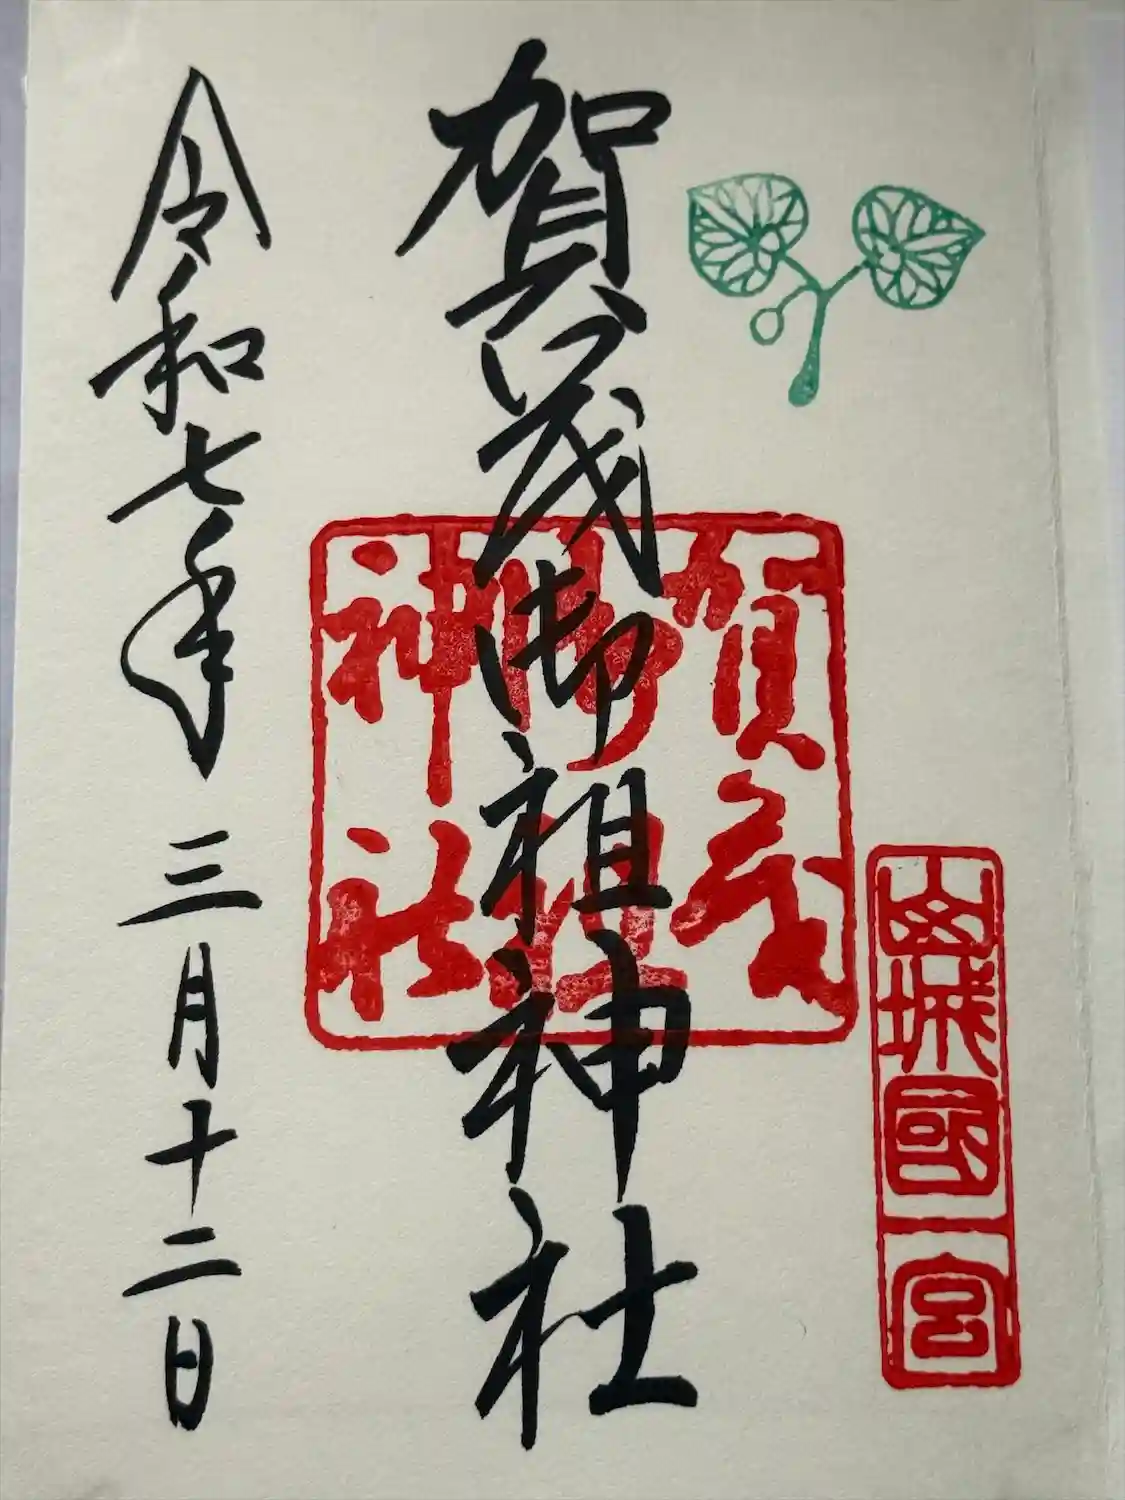 山城國一宮
賀茂御祖神社
賀茂
御祖
神社
令和七年三月十二日